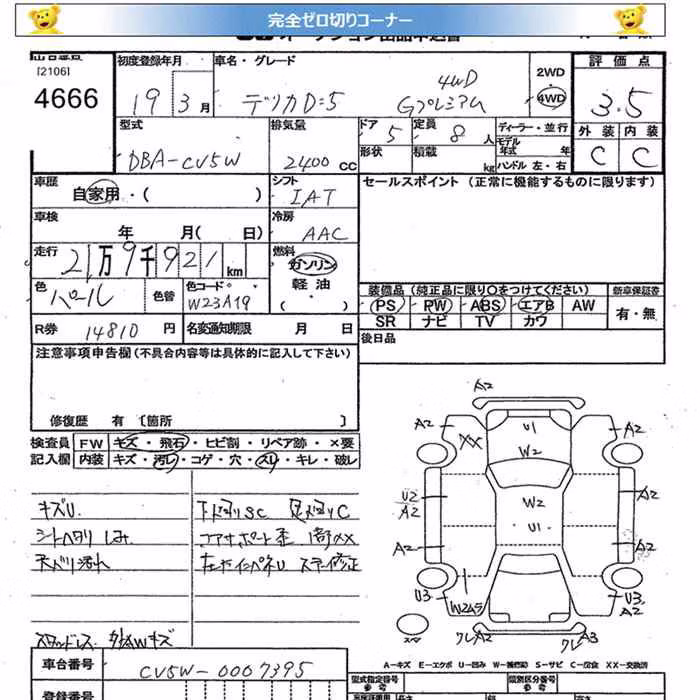 完全ゼロ切りコーナー
[2106]
4666
初度登録年月
19 3月
車名・グレード
デリカD:5
4WD
Gプレミアム
2WD
4WD
評価点
3.5
型式
DBA-CV5W
排気量
2400CC
ドア 5
形状
定員 8人
積載 kg
ディーラー・並行
モデル年式 年
ハンドル 左・右
外装 内装
C C
車歴
自家用・( )
シフト
IAT
セールスポイント (正常に機能するものに限ります)
車検
年 月( 日)
冷房
AAC
走行
2万9千921km
燃料
ガソリン
軽油
・( )
色
パール
色替
色コード
W23A19
装備品(純正品に限り○をつけてください)
新車保証書
PS PW ABS エアB AW
有・無
SR ナビ TV カワ
R券 14810円
名変通知期限 月 日
後日品
注意事項申告欄(不具合内容等は具体的に記入して下さい)
修復歴 有 〔箇所 〕
検査員 FW キズ・飛石・ヒビ割・リペア跡・×要
記入欄 内装 キズ・汚レ・コゲ・穴・スレ・キレ・破レ
キズU
下回りSC
シートヘタリ しみ
コアサポート歪
天ベリ汚れ
スタッドレス
車台番号 CV5W-0007395
登録番号
A2
A2
A2
XX
U1
W2
U2
A2
A2
W2
U1
A2
A2
U3
W2ムラ
U3
A2
スペ
クレA2
クレA3
A-キズ E-エクボ U-凹み W-補修跡 S-サビ C-腐食 XX-交換済
型式指定番号
参考
類別区分番号
参考